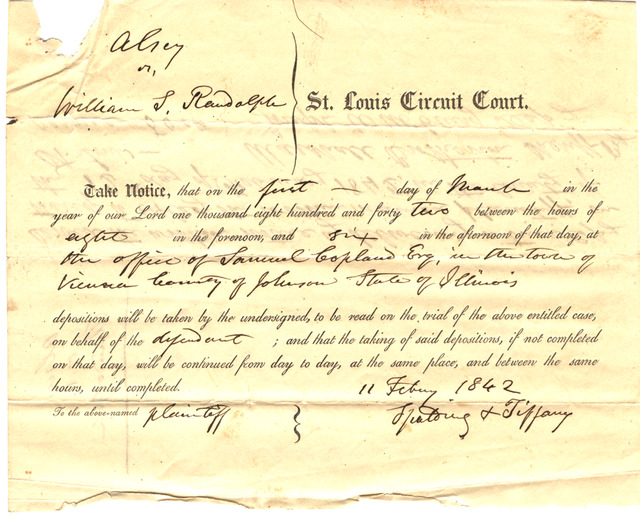 Alsey
vs,
William S. Randolph
St. Louis Circuit Court.
Take Notice, that on the first — day of March in the
year of our Lord one thousand eight hundred and forty two between the hours of
eight in the forenoon, and six in the afternoon of that day, at
the office of Samuel Copland Esq, in the town of
Vienna County of Johnson State of Illinois
depositions will be taken by the undersigned, to be read on the trial of the above entitled case,
on behalf of the defendant ; and that the taking of said depositions, if not completed
on that day, will be continued from day to day, at the same place, and between the same
hours, until completed.
11 Feby 1842
To the above-named plaintiff
Spalding & Tiffany